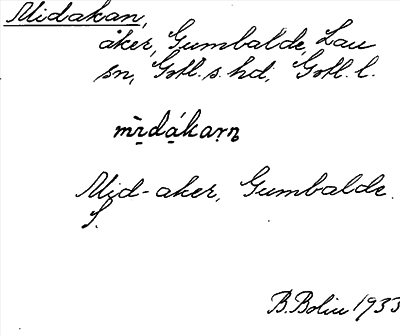 Midakan,
åker, Gumbalde, Lau
sn, Gotl. s. hd, Gotl. l.
mìdákarn
Mid-aker, Gumbalde.
S.
B. Bolin 1933